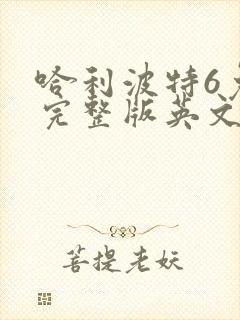 哈利波特6
完整版英文
菩提老妖